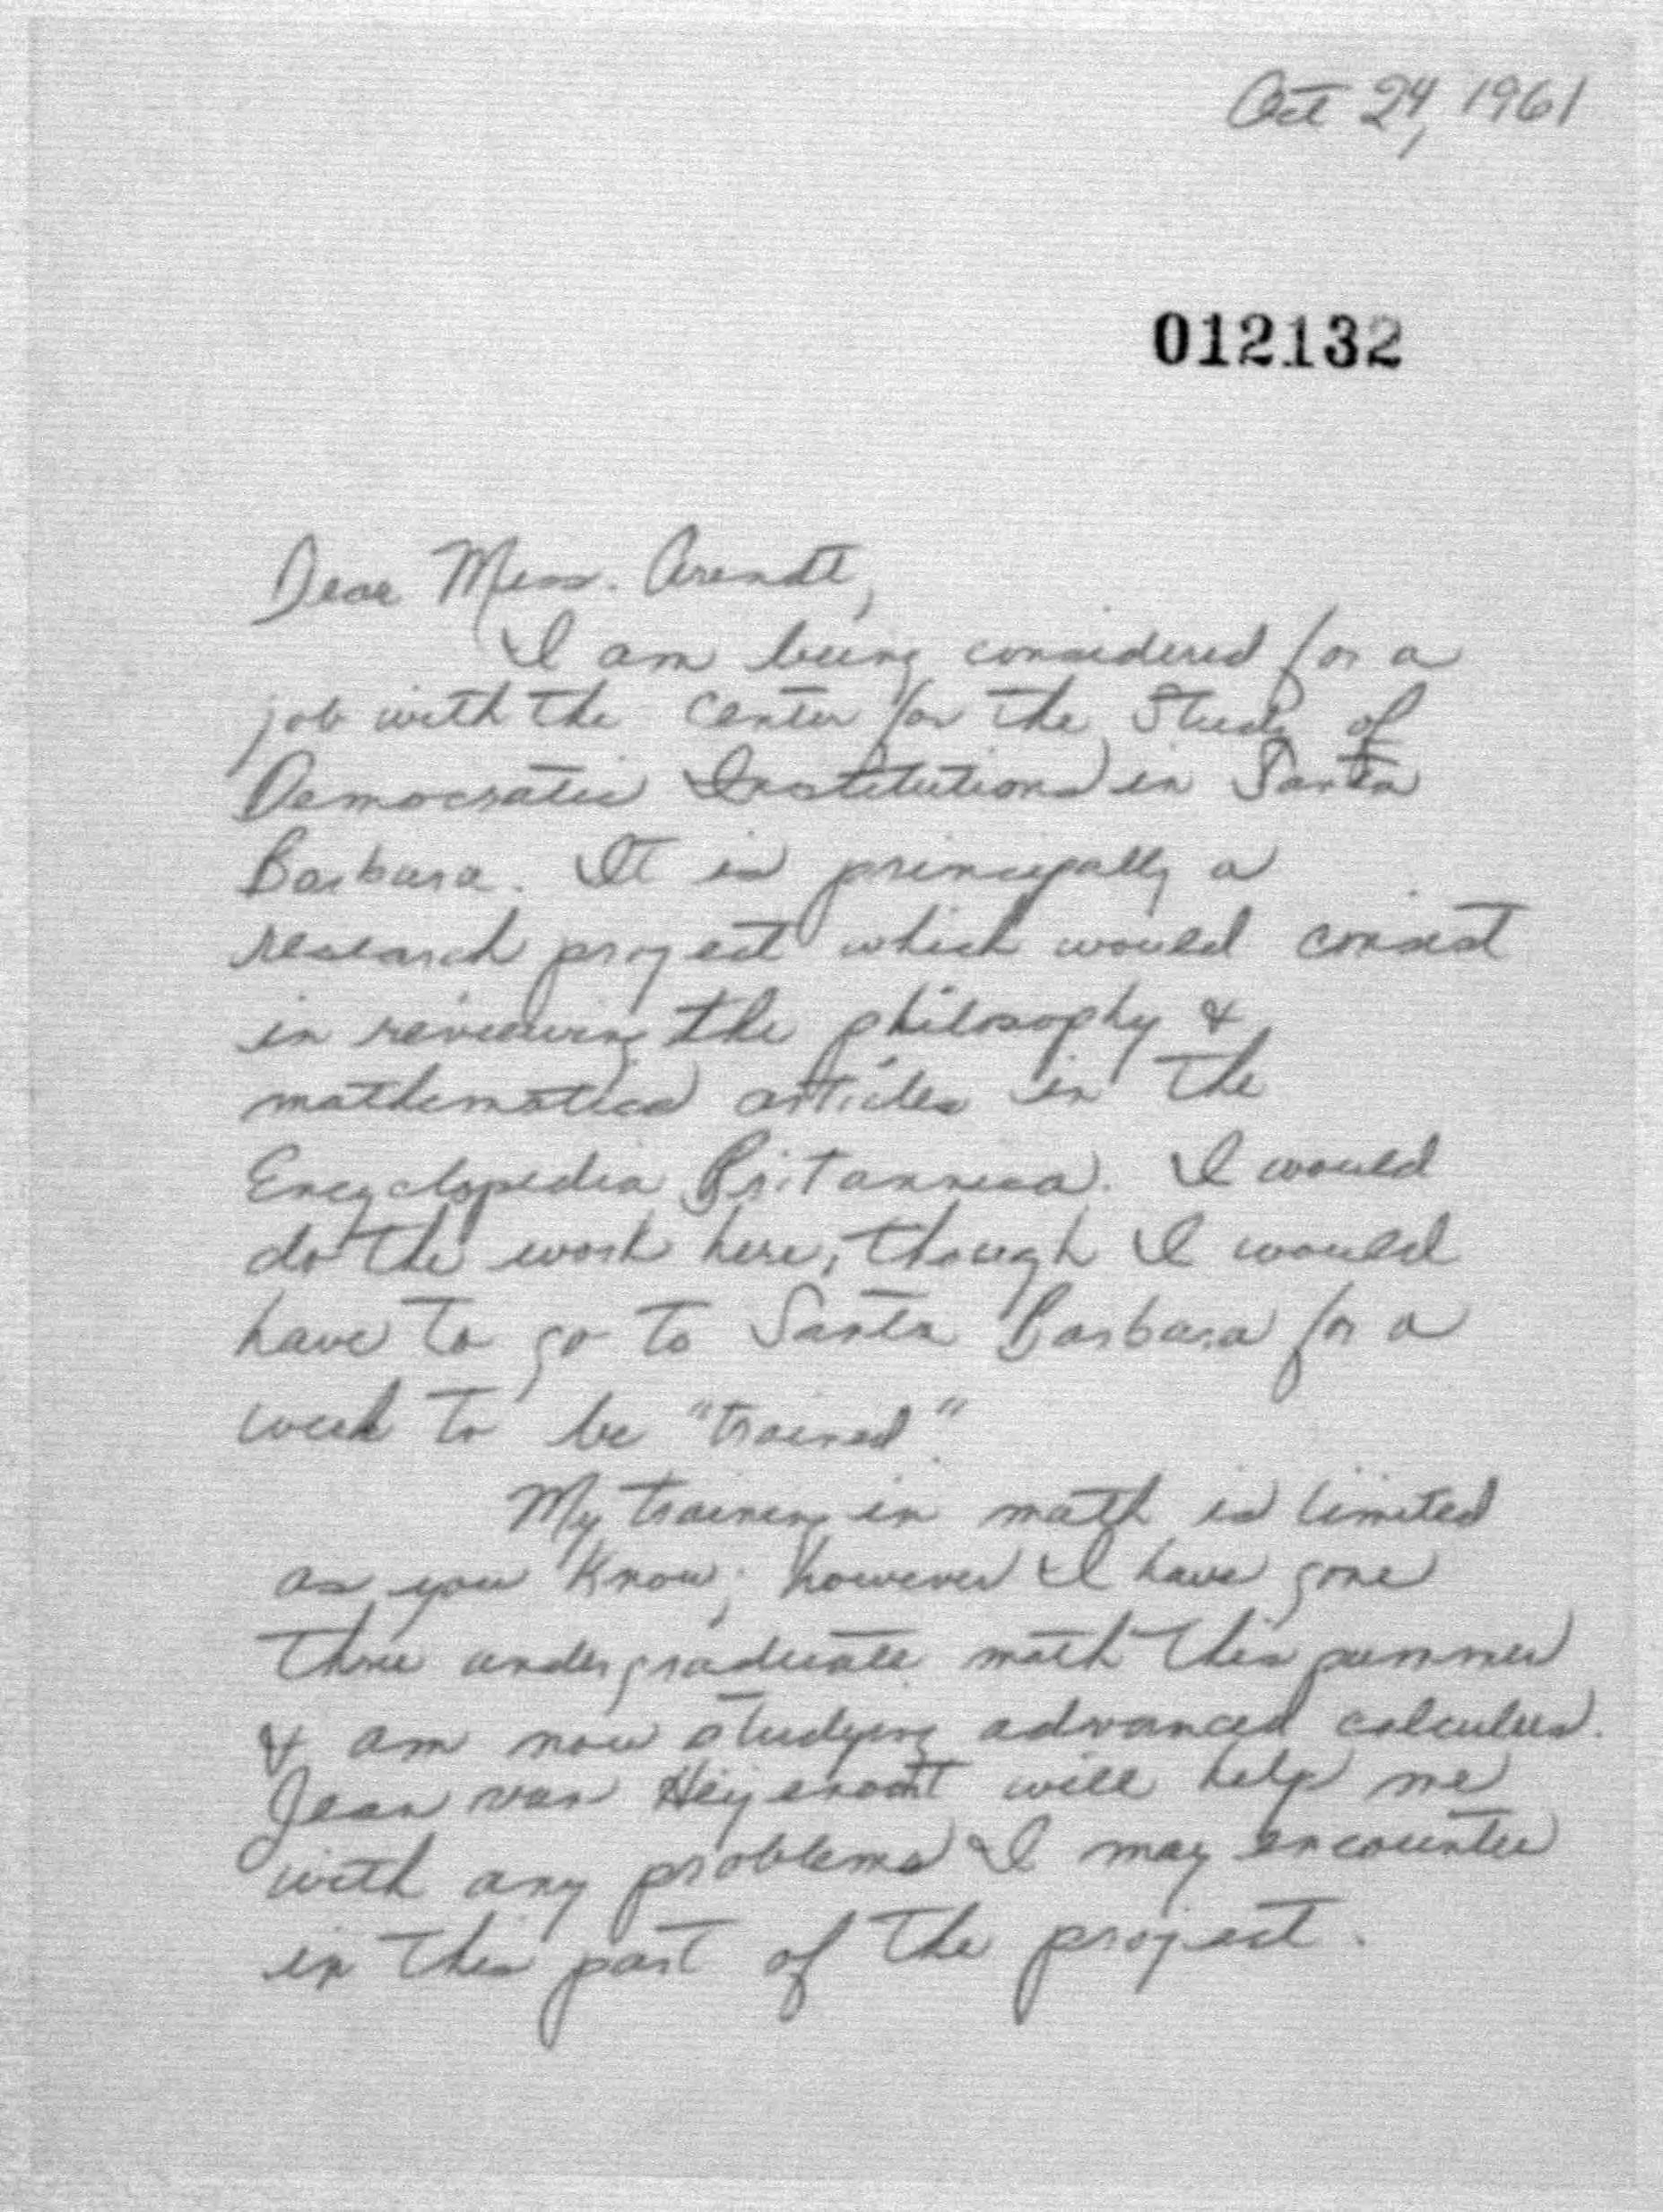 Oct 24, 1961
012132
Dear Miss. Arendt,
I am being considered for a
job with the Center for the Study of
Democratic Institutions in Santa
Barbara. It is principally a
research project which would consist
in reviewing the philosophy &
mathematics articles in the
Encyclopedia Britannica. I would
do the work here, though I would
have to go to Santa Barbara for a
week to be "trained".
My training in math is limited
as you know; however I have gone
thru undergraduate math this summer
& am now studying advanced calculus.
Jean van Heijenoort will help me
with any problems I may encounter
in this part of the project.